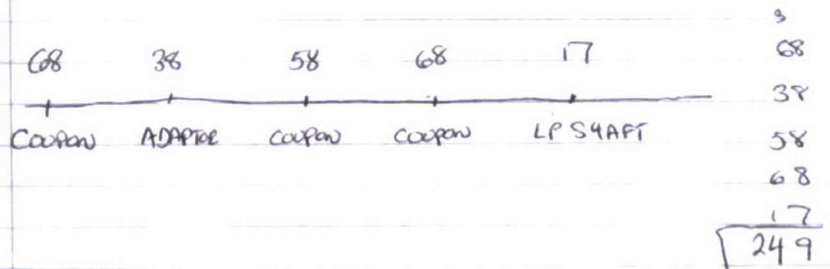 3
68 38 58 68 17 68
38
COUPON ADAPTOR COUPON COUPON LP SHAFT 58
68
17
249